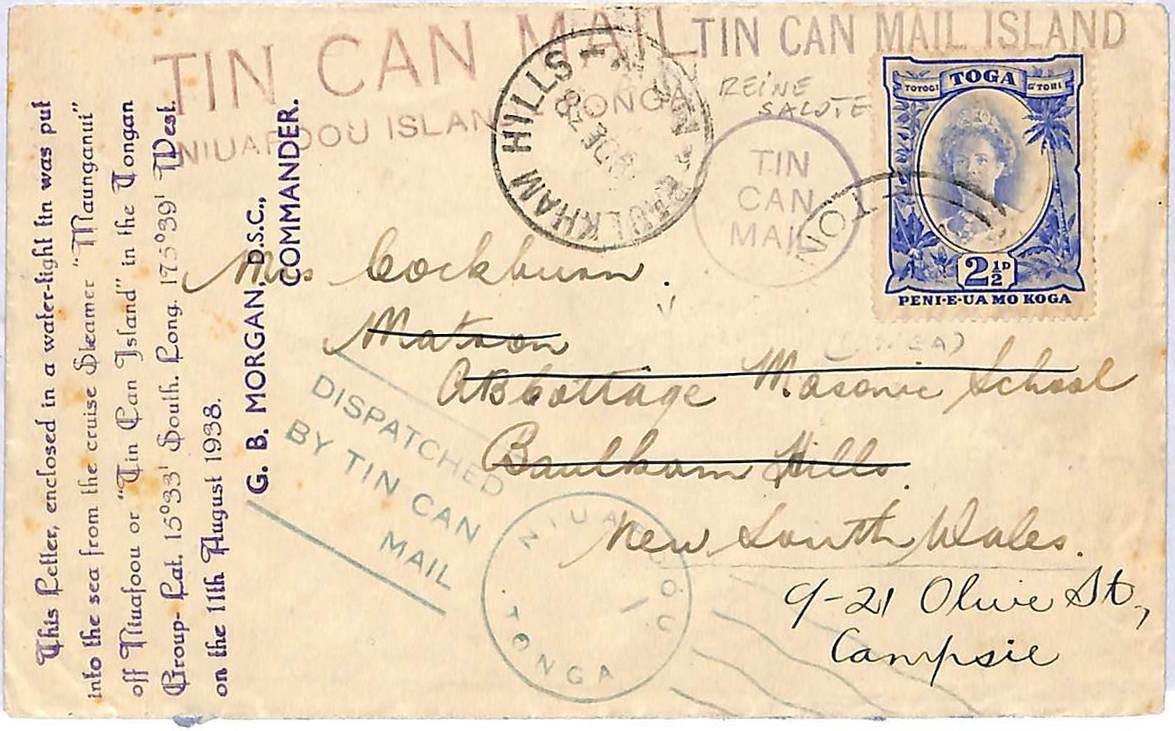 TIN CAN MAIL
NIUAFOOU ISLAND
TONGA
TIN CAN MAIL ISLAND
REINE
SALUTE
TIN
CAN
MAIL
TOGA
TOTOGI
G TOHI
2½D
PENI·E·UA MO KOGA
BAULKHAM HILLS
This Letter, enclosed in a water-tight tin was put
into the sea from the cruise Steamer "Maunganui"
off Niuafoou or "Tin Can Island" in the Tongan
Group- Lat. 15°33' South. Long. 175°39' West.
on the 11th August 1938.
G. B. MORGAN, D.S.C.,
COMMANDER.
Mrs Cockburn.
Matron
Cottage Masonic School
Baulkham Hills.
New South Wales.
9-21 Olive St.,
Campsie
DISPATCHED
BY TIN CAN
MAIL
NIUAFOOU
TONGA